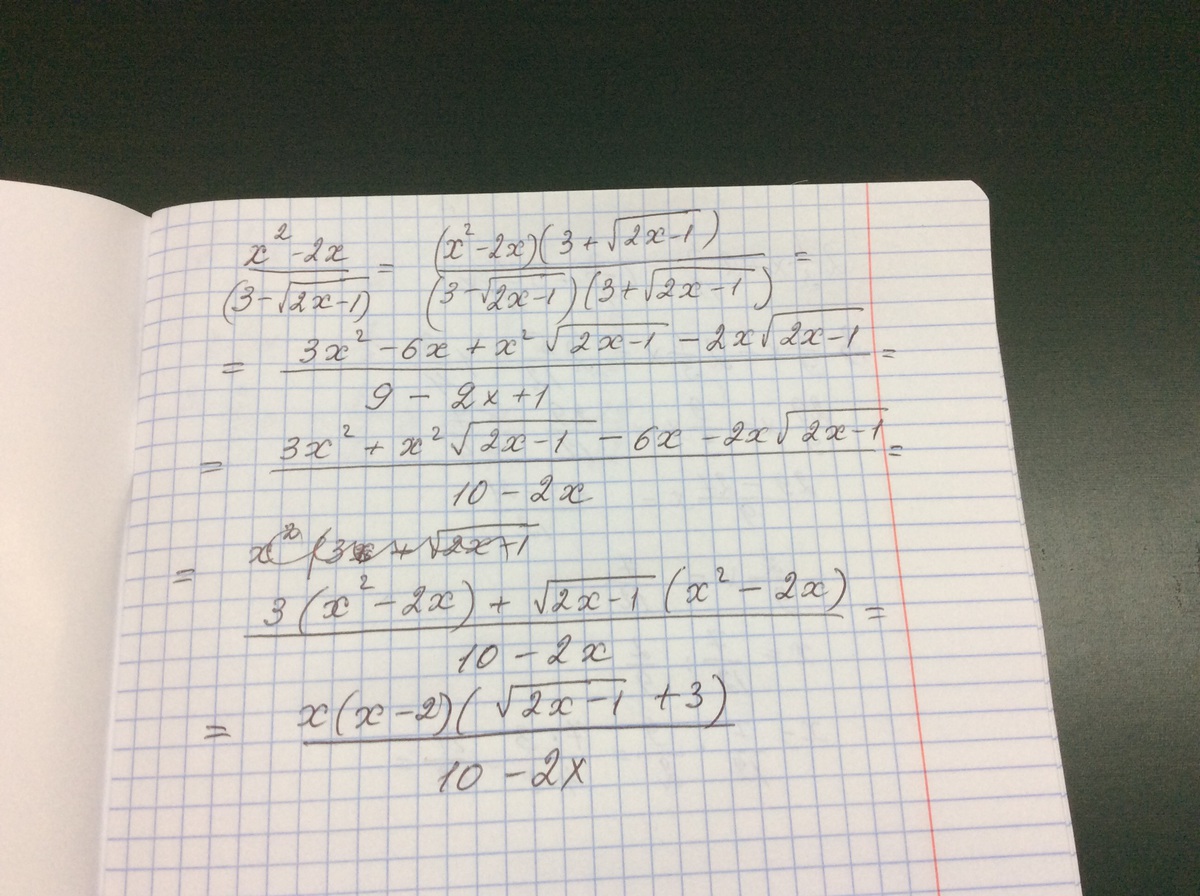 x² - 2x / (3 - √(2x-1)) = (x² - 2x)(3 + √(2x-1)) / (3 - √(2x-1))(3 + √(2x-1)) =
= 3x² - 6x + x²√(2x-1) - 2x√(2x-1) / 9 - 2x + 1 =
= 3x² + x²√(2x-1) - 6x - 2x√(2x-1) / 10 - 2x =
= 3(x² - 2x) + √(2x-1) (x² - 2x) / 10 - 2x =
= x(x-2)(√(2x-1) + 3) / 10 - 2x